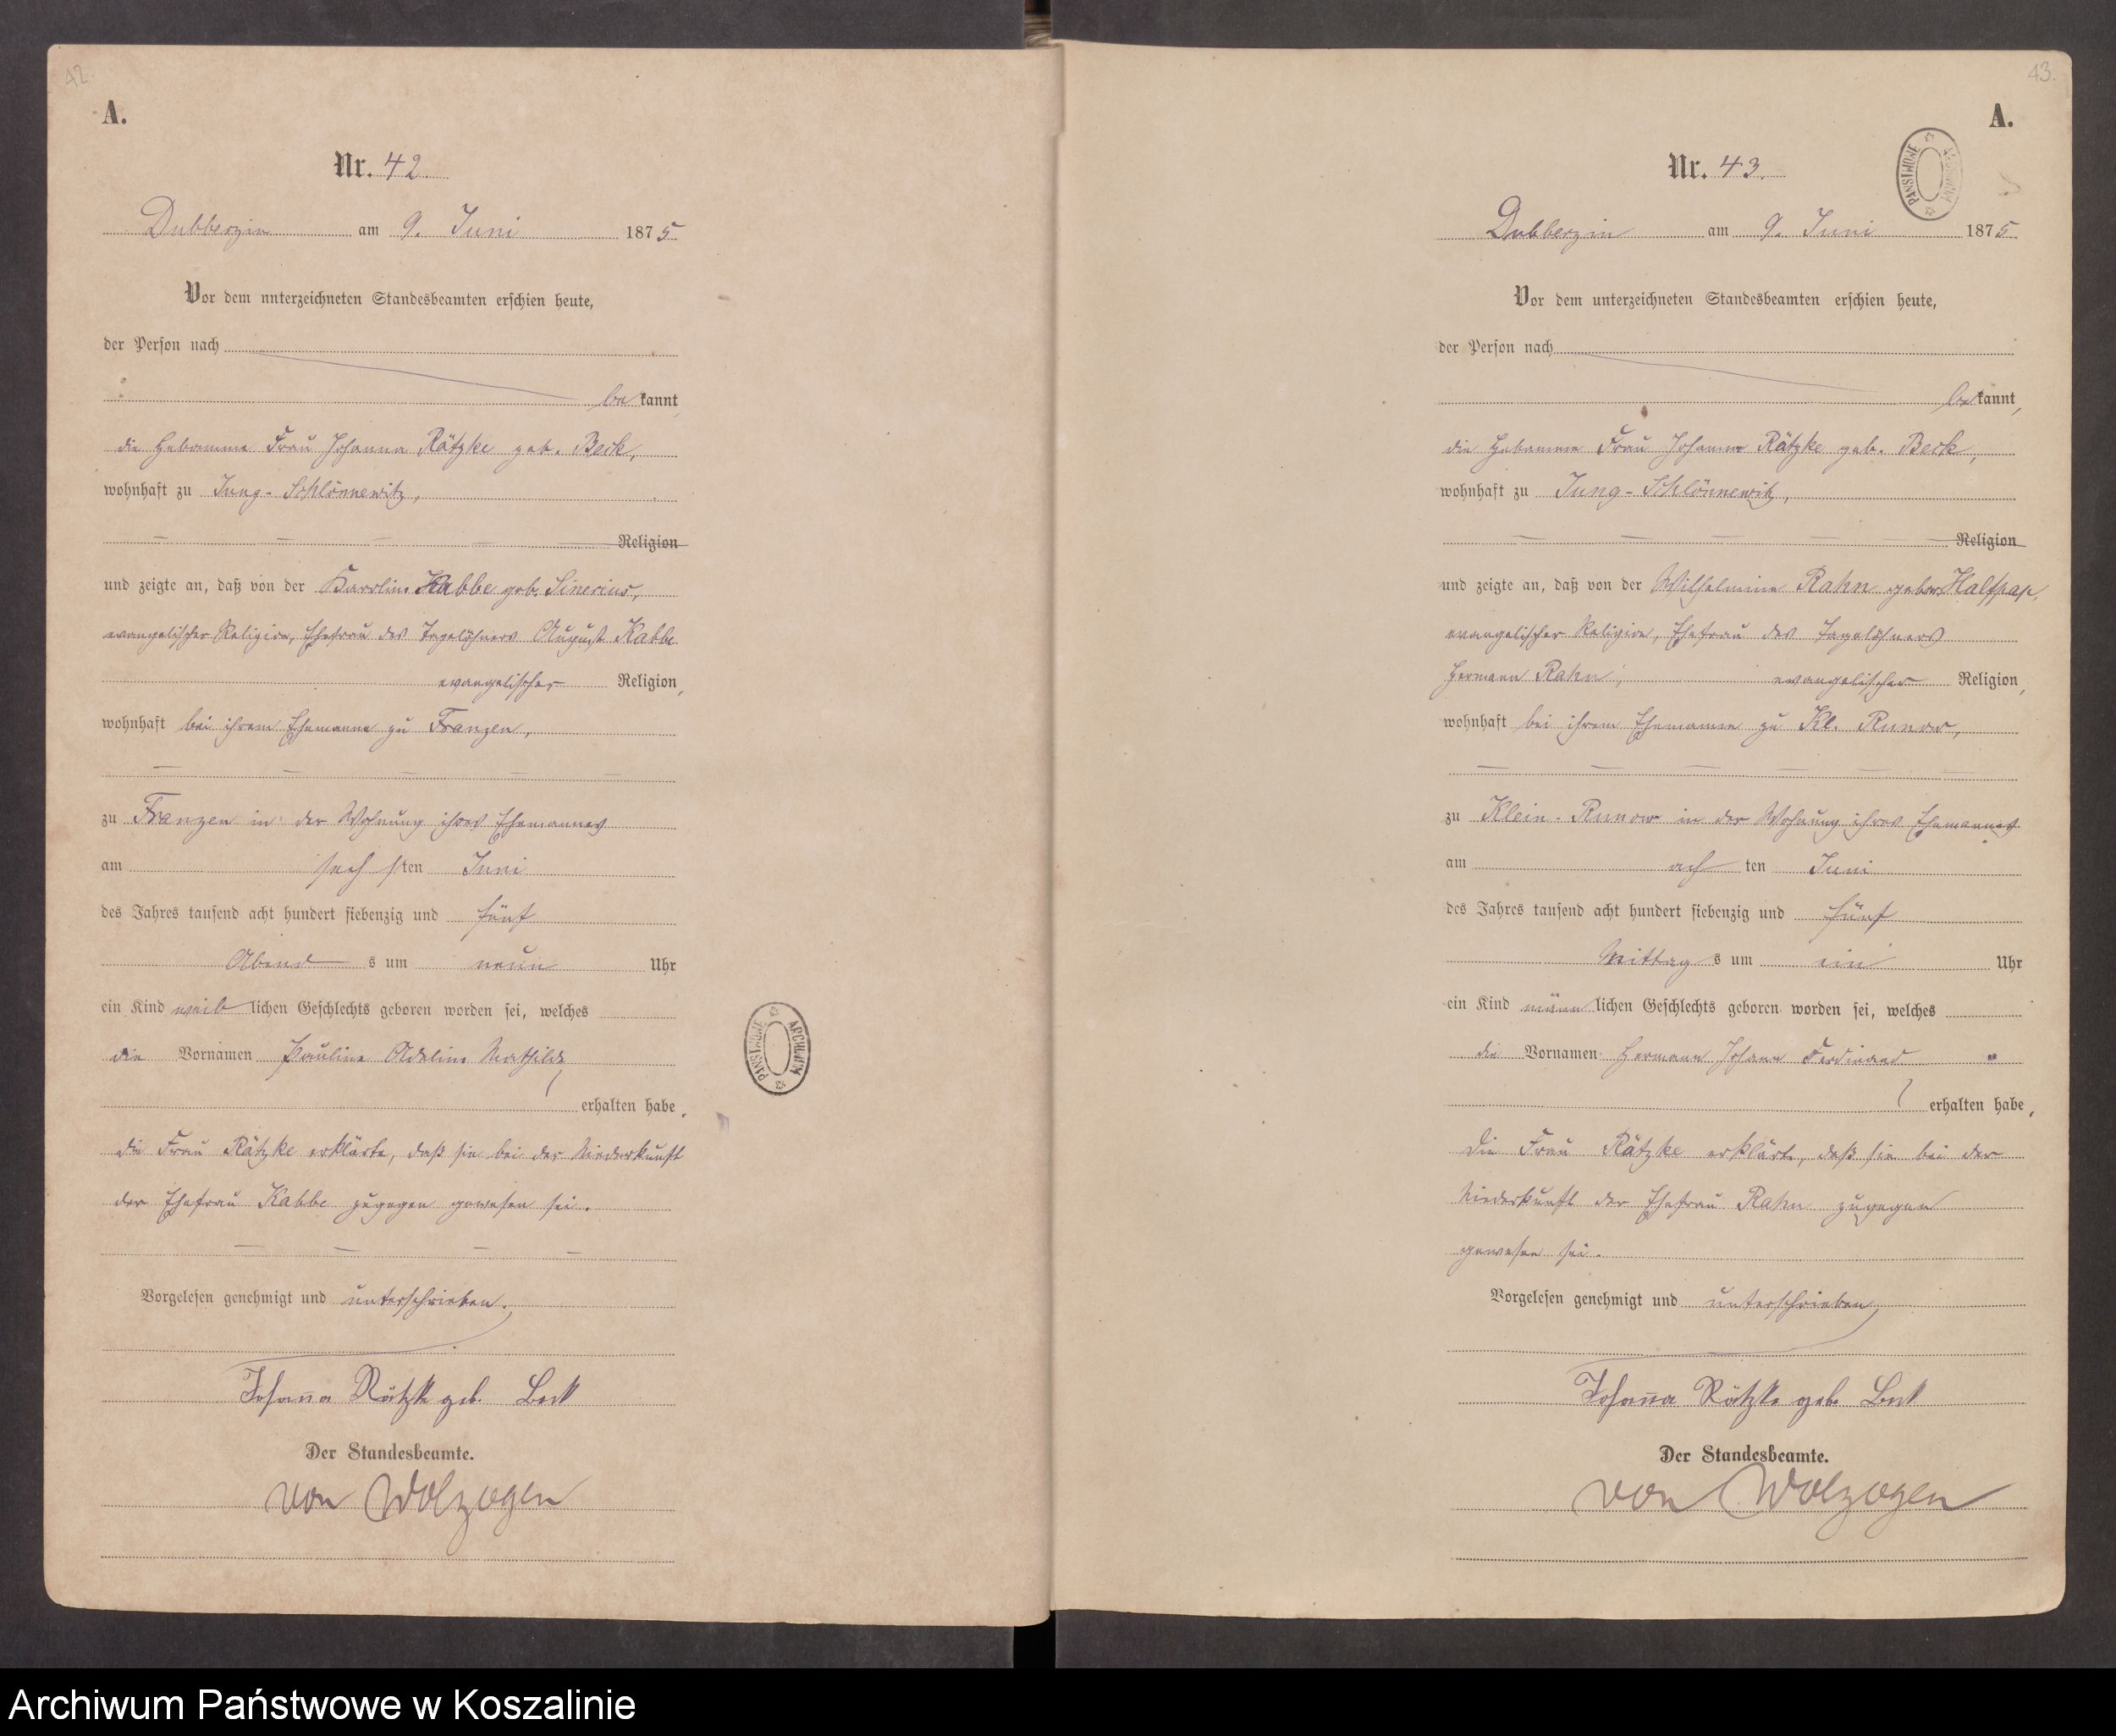 42.
A.
Nr. 42.
Dubberzin am 9. Juni 1875.
Vor dem unterzeichneten Standesbeamten erschien heute,
der Person nach
bekannt,
die Hebamme Frau Johanna Rätzke geb. Beck,
wohnhaft zu Jung-Schlönnewitz,
Religion
und zeigte an, daß von der Karoline Kabbe geb. Sinerius,
evangelischer Religion, Ehefrau des Tagelöhners August Kabbe
evangelischer Religion,
wohnhaft bei ihrem Ehemanne zu Franzen,
zu Franzen in der Wohnung ihres Ehemannes
am sechsten Juni
des Jahres tausend acht hundert siebenzig und fünf
Abends um neun Uhr
ein Kind weiblichen Geschlechts geboren worden sei, welches
die Vornamen Pauline Adeline Mathilde
erhalten habe.
die Frau Rätzke erklärte, daß sie bei der Niederkunft
der Ehefrau Kabbe zugegen gewesen sei.
Vorgelesen genehmigt und unterschrieben.
Johanna Rätzke geb. Beck
Der Standesbeamte.
von Wolzogen
ARCHIWUM PAŃSTWOWE
43.
A.
PAŃSTWOWE ARCHIWUM
Nr. 43.
Dubberzin am 9. Juni 1875.
Vor dem unterzeichneten Standesbeamten erschien heute,
der Person nach
bekannt,
die Hebamme Frau Johanna Rätzke geb. Beck,
wohnhaft zu Jung-Schlönnewitz,
Religion
und zeigte an, daß von der Wilhelmine Rahn geborn. Halfpap,
evangelischer Religion, Ehefrau des Tagelöhners
Hermann Rahn, evangelischer Religion,
wohnhaft bei ihrem Ehemanne zu Kl. Runow,
zu Klein-Runow in der Wohnung ihres Ehemannes
am achten Juni
des Jahres tausend acht hundert siebenzig und fünf
Mittags um ein Uhr
ein Kind männlichen Geschlechts geboren worden sei, welches
die Vornamen Hermann Johann Ferdinand
erhalten habe,
Die Frau Rätzke erklärte, daß sie bei der
Niederkunft der Ehefrau Rahn zugegen
gewesen sei.
Vorgelesen genehmigt und unterschrieben,
Johanna Rätzke geb. Beck
Der Standesbeamte.
von Wolzogen
Archiwum Państwowe w Koszalinie